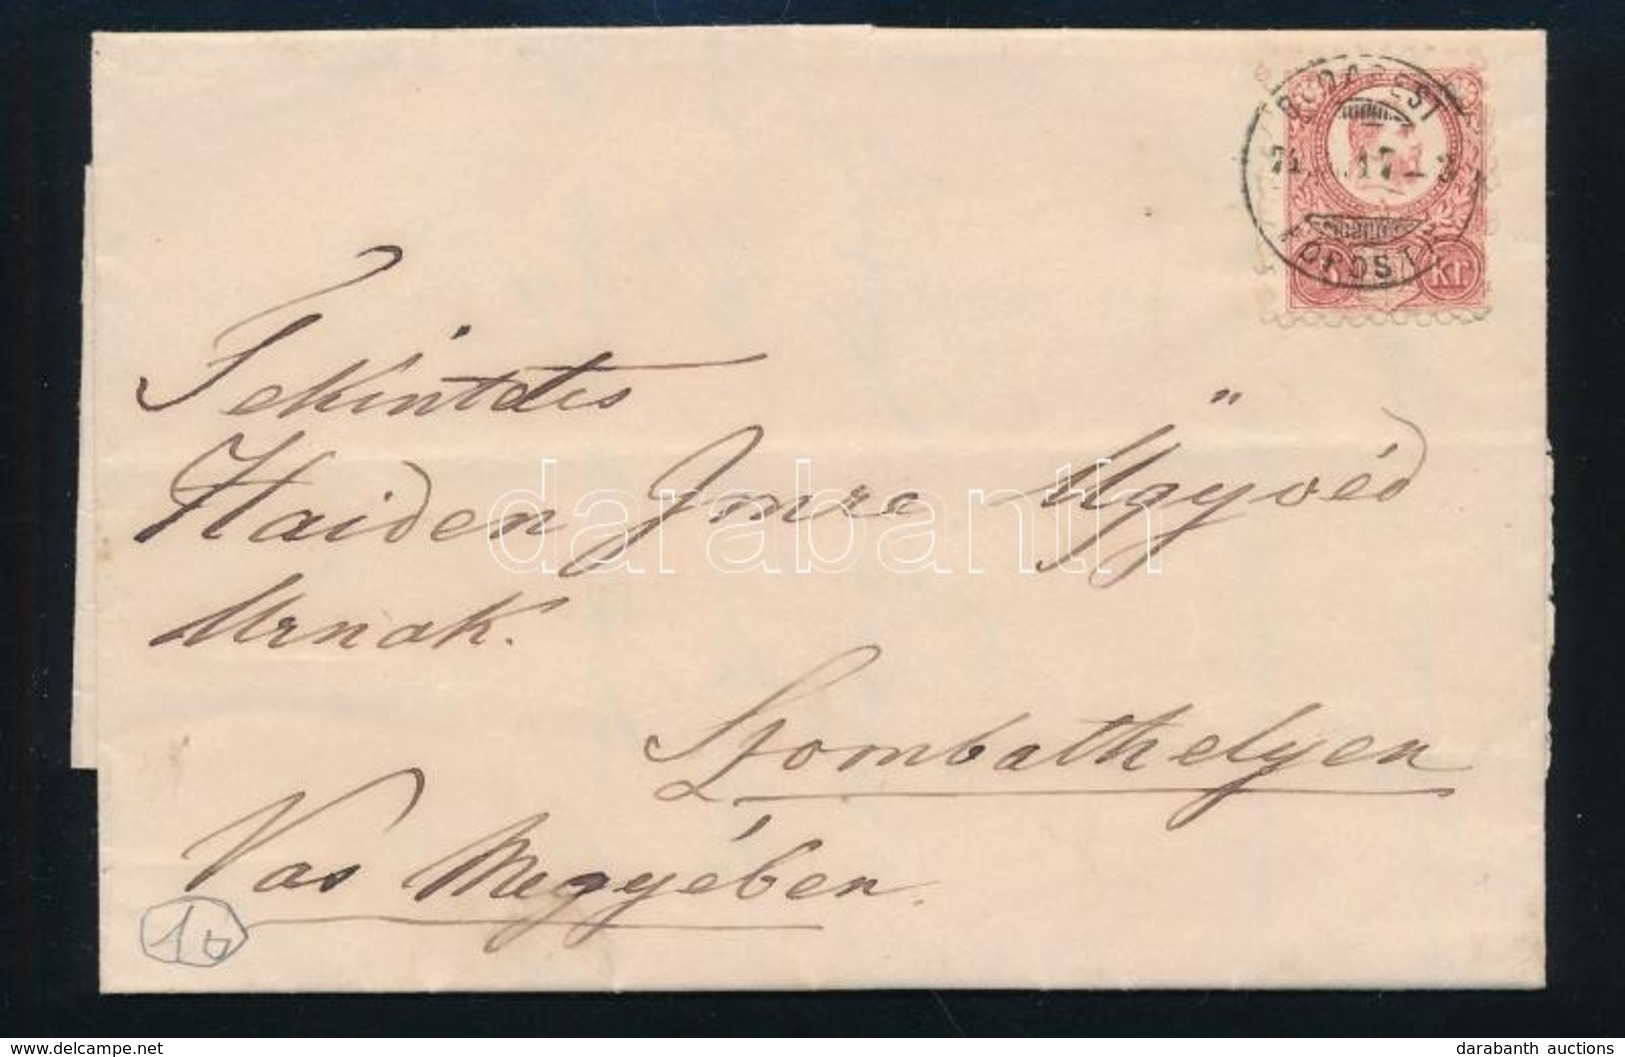 BUDAPEST
74 17
FŐPOSTA
Kr
Tekintetes
Haiden Imre Ügyvéd
Urnak.
Szombathelyen
Vas Megyében.
darabanth
delcampe.net
darabanth auctions